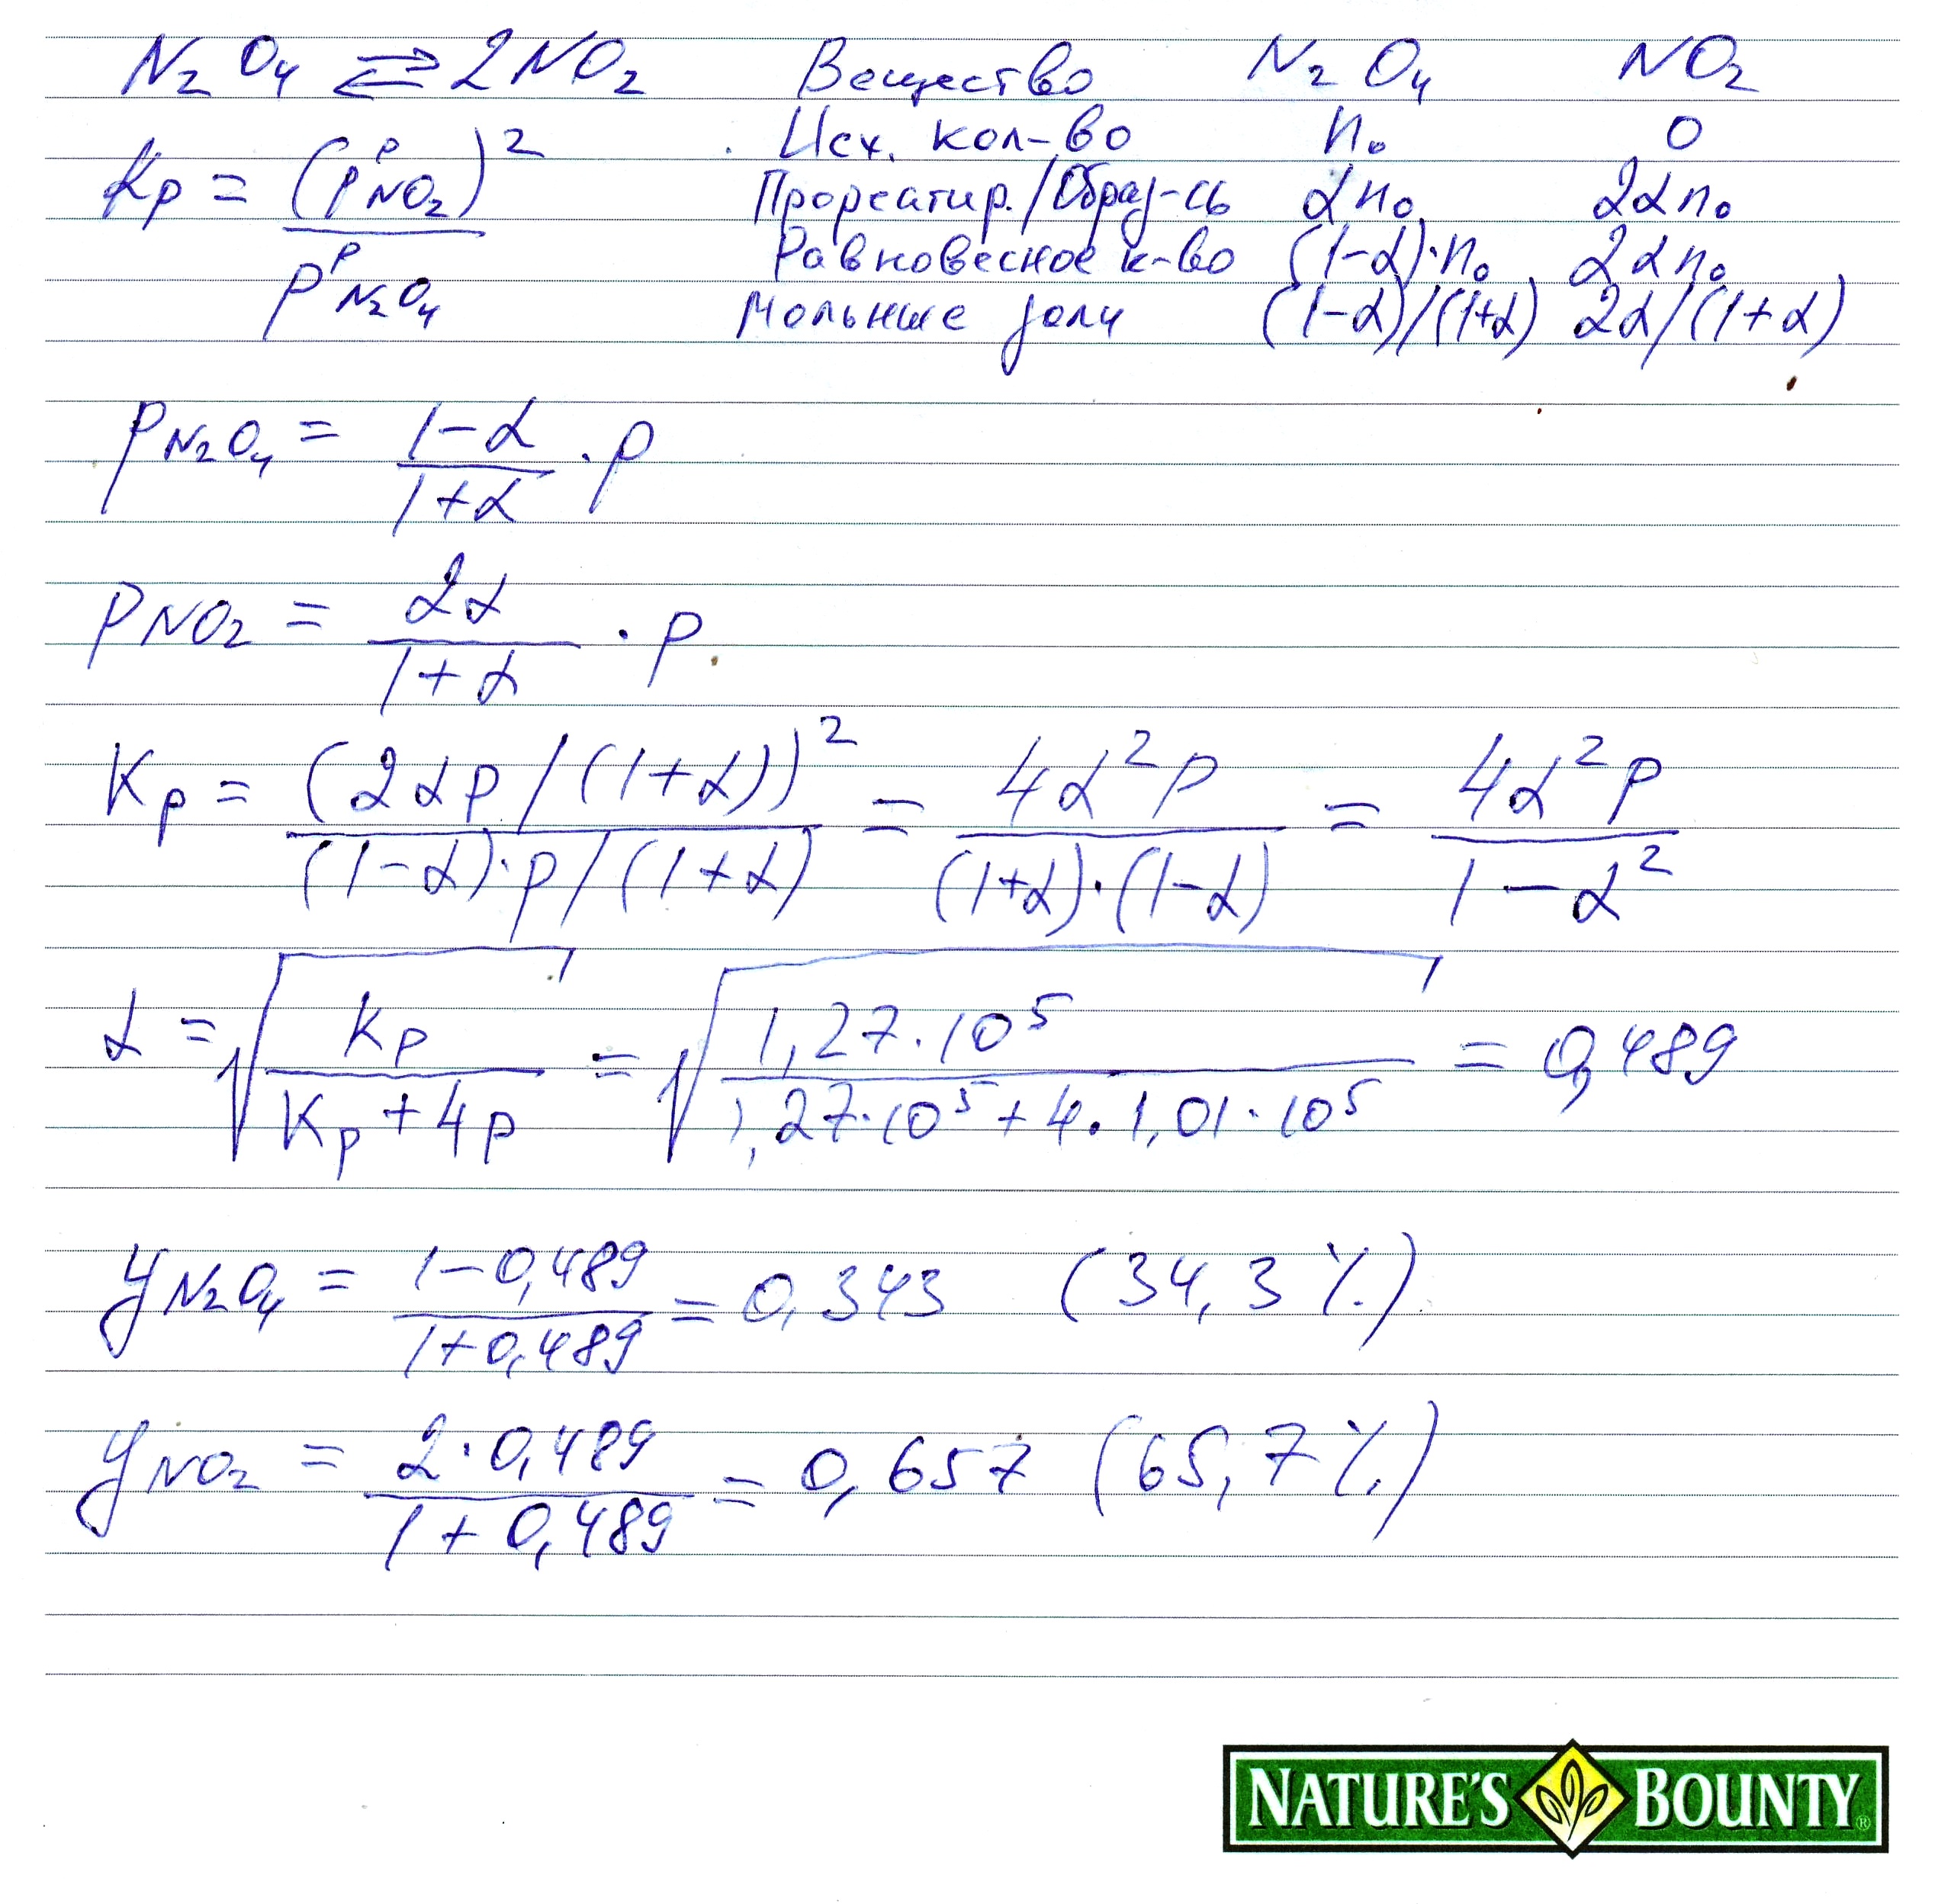 N₂O₄ ⇄ 2NO₂ Вещество N₂O₄ NO₂
Исх. кол-во n₀ 0
Kp = (pᵖNO₂)² / pᵖN₂O₄
Прореагир./Образ-сь αn₀ 2αn₀
Равновесное к-во (1-α)·n₀ 2αn₀
Мольные доли (1-α)/(1+α) 2α/(1+α)
pN₂O₄ = (1-α)/(1+α) · p
pNO₂ = 2α/(1+α) · p
Kp = (2αp/(1+α))² / ((1-α)·p/(1+α)) = 4α²p / ((1+α)·(1-α)) = 4α²p / (1-α²)
α = √(Kp / (Kp+4p)) = √(1,27·10⁵ / (1,27·10⁵+4·1,01·10⁵)) = 0,489
yN₂O₄ = (1-0,489)/(1+0,489) = 0,343 (34,3%)
yNO₂ = (2·0,489)/(1+0,489) = 0,657 (65,7%)
NATURE'S BOUNTY®